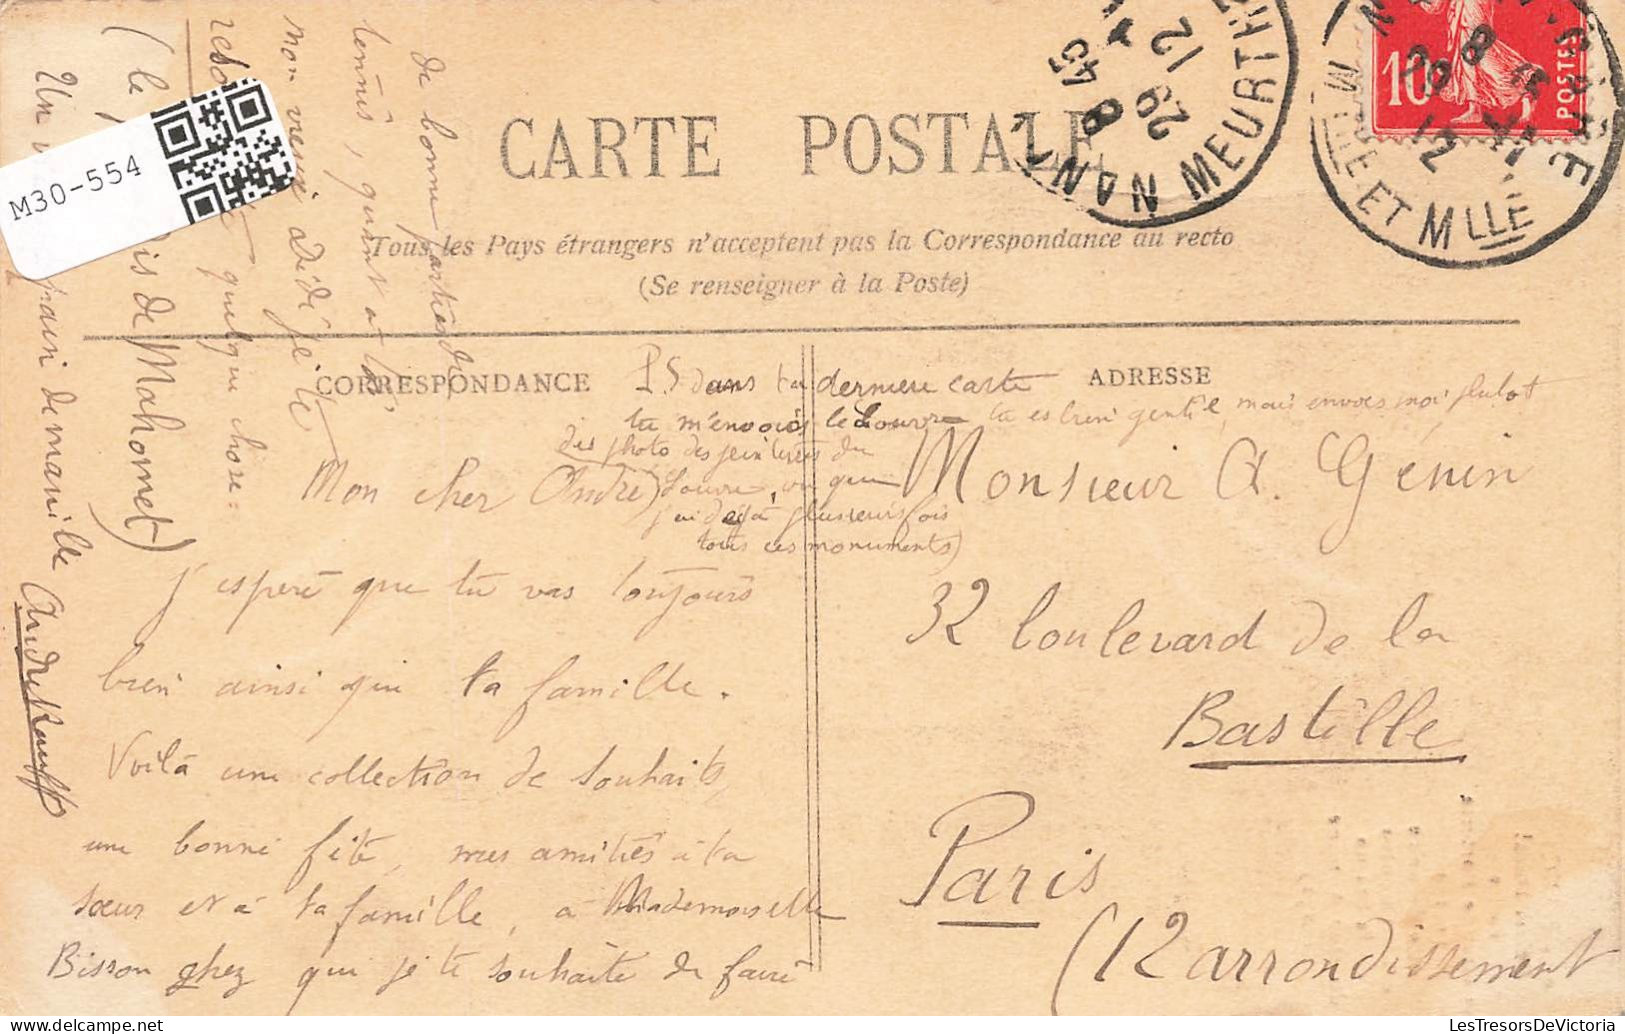 CARTE POSTALE
Tous les Pays étrangers n'acceptent pas la Correspondance au recto
(Se renseigner à la Poste)
CORRESPONDANCE
ADRESSE
Mon cher André
j'espere que tu vas toujours
bien ainsi que ta famille.
Voilà une collection de souhaits,
une bonne fête, mes amitiés à ta
sœur et à ta famille, à Mademoiselle
Bisson chez qui je te souhaite de faire
de bonne parties de
tennis, quant à
mon vieux Dédé je te
quelque chose :
(le
dis de Mahomet)
Un
pain de manille
P.S dans ta derniere carte
tu m'envoiés le Louvre tu es bien gentil, mais envoies moi plutot
des photo des peintures du
Louvre, vu que
j'ai dejà plusieurs fois
touts ces monuments)
Monsieur A. Génin
32 boulevard de la
Bastille
Paris
(12 arrondissement
M30-554
NANCY MEURTHE
8 45
29
12
ET MLLE
10
POSTES
LesTresorsDeVictoria